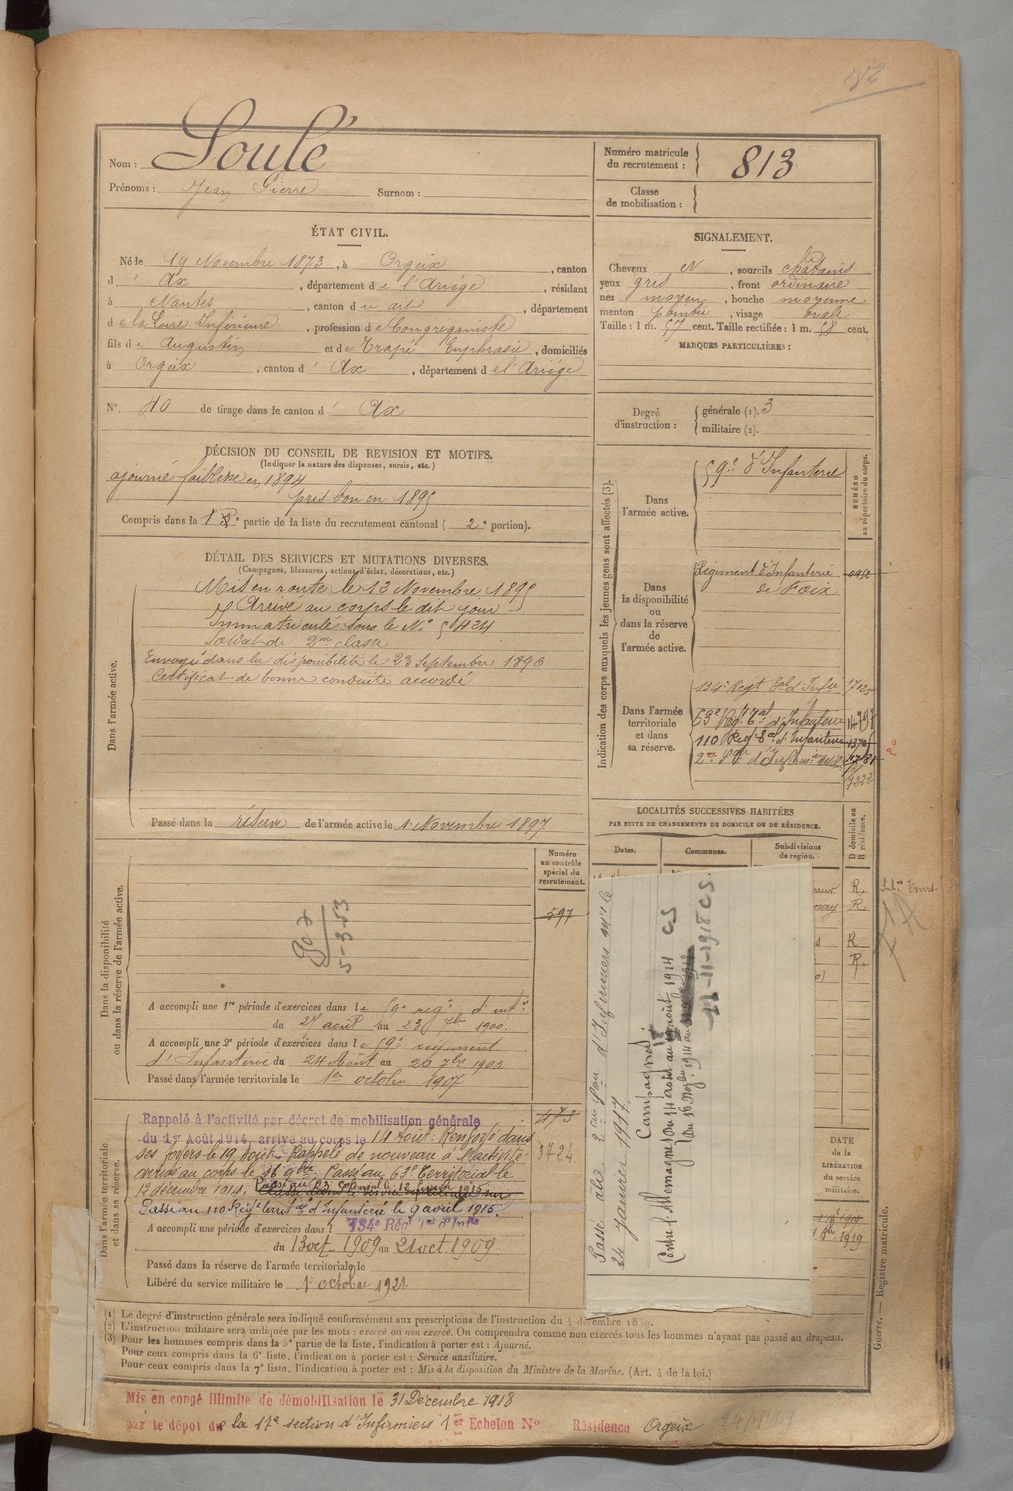 182
Nom : Soulé
Prénoms : Jean Pierre Surnom :
Numéro matricule
du recrutement : 813
Classe
de mobilisation :
ÉTAT CIVIL.
Né le 19 Novembre 1873, à Orgeix, canton
d' Ax, département de l'Ariège, résidant
à Nantes, canton du dit, département
de la Loire Inférieure, profession de Congréganiste
fils de Augustin et de Trapé Euphrasie, domiciliés
à Orgeix, canton d' Ax, département de l'Ariège
N° 40 de tirage dans le canton d' Ax
SIGNALEMENT.
Cheveux et sourcils châtains
yeux gris, front ordinaire
nez moyen, bouche moyenne
menton pointu, visage ovale
Taille : 1 m. 57 cent. Taille rectifiée : 1 m. 58 cent.
MARQUES PARTICULIÈRES :
Degré
d'instruction :
générale (1). 3
militaire (2).
DÉCISION DU CONSEIL DE REVISION ET MOTIFS.
(Indiquer la nature des dispenses, sursis, etc.)
ajourné faiblesse en 1894
pris bon en 1895
Compris dans la 1re partie de la liste du recrutement cantonal ( 2e portion).
DÉTAIL DES SERVICES ET MUTATIONS DIVERSES.
(Campagnes, blessures, actions d'éclat, décorations, etc.)
Dans l'armée active.
Mis en route le 12 Novembre 1895
Arrivé au corps le dit jour
Immatriculé sous le N° 5424
Soldat de 2me classe
Envoyé dans la disponibilité le 23 Septembre 1896
Certificat de bonne conduite accordé
Passé dans la réserve de l'armée active le 1er Novembre 1897
Indication des corps auxquels les jeunes gens sont affectés (3).
NUMÉRO
au répertoire du corps.
Dans
l'armée active.
59e d'Infanterie
Dans
la disponibilité
ou
dans la réserve
de
l'armée active.
Régiment d'Infanterie
de Foix
Dans l'armée
territoriale
et dans
sa réserve.
134e Regt tal d'Infie
63e Reg. tal d'Infanterie
110 Reg. tal d'Infanterie
LOCALITÉS SUCCESSIVES HABITÉES
PAR SUITE DE CHANGEMENTS DE DOMICILE OU DE RÉSIDENCE.
Dates. Communes. Subdivisions
de région.
D domicile ou
R résidence.
R.
R
R
R.
Dans la disponibilité
ou dans la réserve de l'armée active.
Numéro
au contrôle
spécial du
recrutement.
597
5-3-53
A accompli une 1re période d'exercices dans le 59e reg. d'inf.
du 27 août au 23 7bre 1900.
A accompli une 2e période d'exercices dans le 59e régiment
d'Infanterie du 24 Août au 20 7bre 1903
Passé dans l'armée territoriale le 1er octobre 1907
Dans l'armée territoriale
et dans sa réserve.
Rappelé à l'activité par décret de mobilisation générale
du 1er Août 1914, arrivé au corps le 14 Août. Renvoyé dans
ses foyers le 19 Août. Rappelé de nouveau à l'activité
arrivé au corps le 16 9bre. Passé au 63e Territorial le
12 décembre 1914.
Passé au 110 Regt territal d'Infanterie le 9 avril 1915.
473
3724
A accompli une période d'exercices dans l 134e Régt Tal d'Infie
du 13 oct 1909 au 21 oct 1909
Passé dans la réserve de l'armée territoriale le
Libéré du service militaire le 1er octobre 1921.
Passé à la 2eme Son d'Infirmiers Mre le
24 janvier 1917.
Campagnes
Contre l'Allemagne du 14 août au 19 août 1914 CS
du 16 Novbre 1914 au
11-11-1918 CS.
DATE
DE LA
LIBÉRATION
du service
militaire.
1919
(1) Le degré d'instruction générale sera indiqué conformément aux prescriptions de l'instruction du 4 décembre 1889.
(2) L'instruction militaire sera indiquée par les mots : exercé ou non exercé. On comprendra comme non exercés tous les hommes n'ayant pas passé au drapeau.
(3) Pour les hommes compris dans la 5e partie de la liste, l'indication à porter est : Ajourné.
Pour ceux compris dans la 6e liste, l'indication à porter est : Service auxiliaire.
Pour ceux compris dans la 7e liste, l'indication à porter est : Mis à la disposition du Ministre de la Marine. (Art. 4 de la loi.)
Guerre. — Registre matricule.
Mis en congé illimité de démobilisation le 31 Décembre 1918
par le dépôt de la 17e section d'Infirmiers 1er Echelon N° Résidence Orgeix